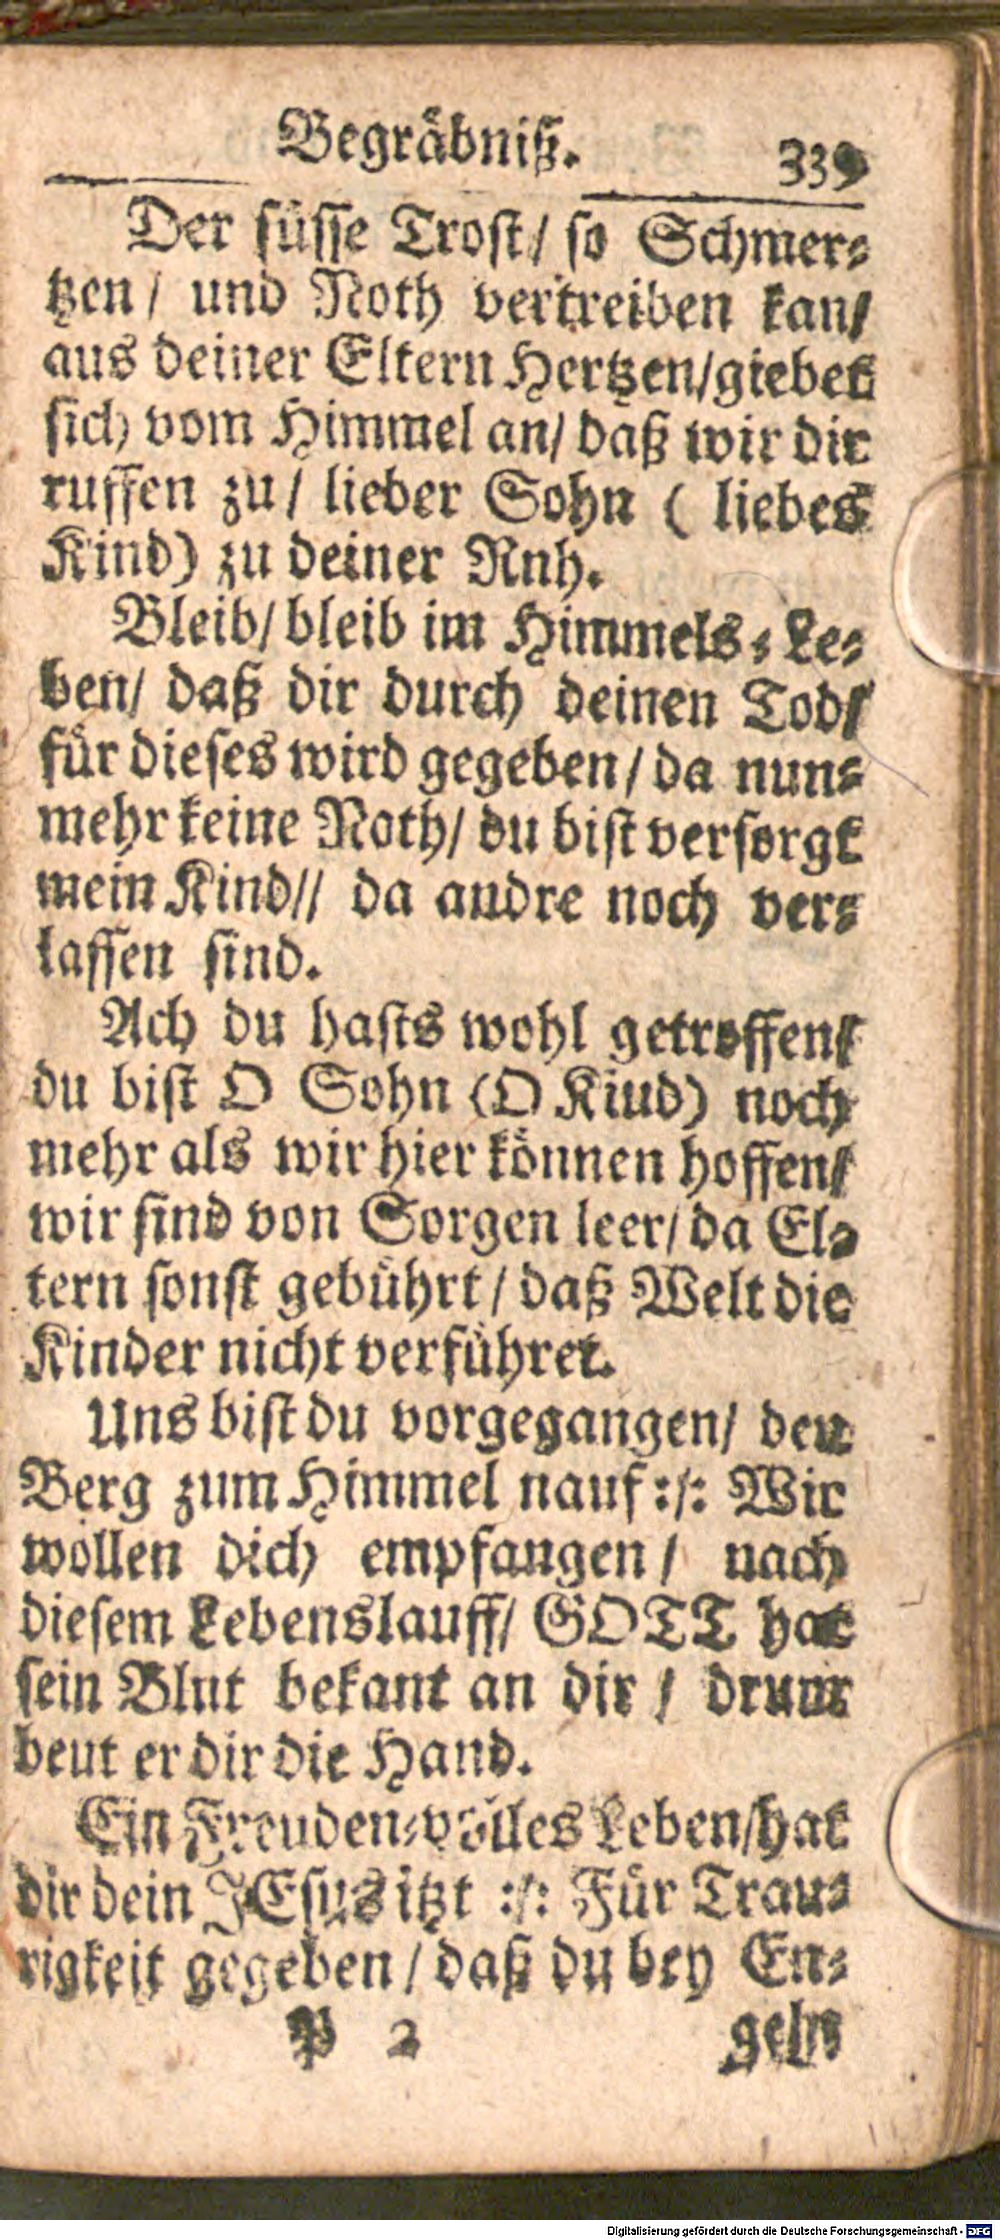 Begräbniß. 339
Der süsse Trost / so Schmer-
tzen / und Noth vertreiben kan /
aus deiner Eltern Hertzen / giebet
sich vom Himmel an / daß wir dir
ruffen zu / lieber Sohn ( liebes
Kind) zu deiner Rnh.
Bleib / bleib im Himmels-Le-
ben / daß dir durch deinen Tod /
für dieses wird gegeben / da nun-
mehr keine Noth / du bist versorgt
mein Kind // da andre noch ver-
lassen sind.
Ach du hasts wohl getroffen /
du bist O Sohn (O Kiud) noch
mehr als wir hier können hoffen /
wir sind von Sorgen leer / da El-
tern sonst gebührt / daß Welt die
Kinder nicht verführet.
Uns bist du vorgegangen / den
Berg zum Himmel nauf :/: Wir
wollen dich empfangen / nach
diesem Lebenslauff / GOTT hat
sein Blnt bekant an dir / drum
beut er dir die Hand.
Ein Freuden-volles Leben / hat
dir dein JEsus itzt :/: Für Trau-
rigkeit gegeben / daß du bey En-
P 2 geln
Digitalisierung gefördert durch die Deutsche Forschungsgemeinschaft - DFG